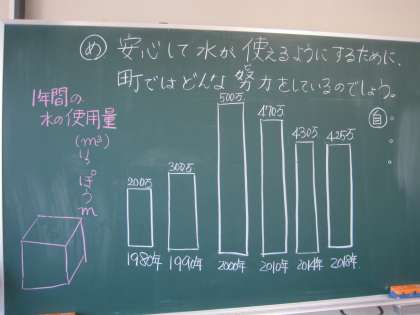 め 安心して水が使えるようにするために、
町ではどんな努力をしているのでしょう。
1年間の
水の使用量
(m³)
りっぽうm
自
200万
300万
500万
470万
430万
425万
1980年
1990年
2000年
2010年
2014年
2018年